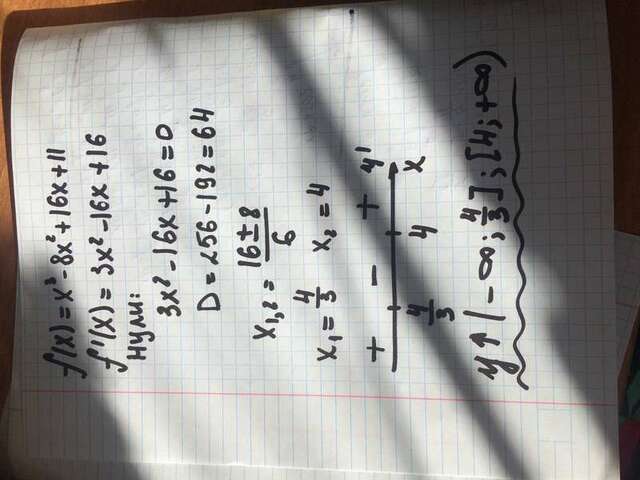 f(x)=x³-8x²+16x+11
f'(x)=3x²-16x+16
нули:
3x²-16x+16=0
D=256-192=64
x₁,₂=(16±8)/6
x₁=4/3 x₂=4
+ - + y'
4/3 4 x
y↑(-∞;4/3];[4;+∞)